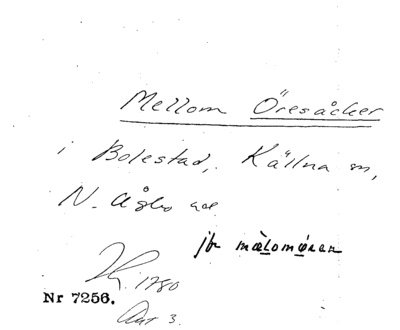 Mellom Öresåcker
i Bolestad, Källna sn,
N. Åsbo hd
jbr mælomøræn
1780
Nr 7256.
Akt 3.